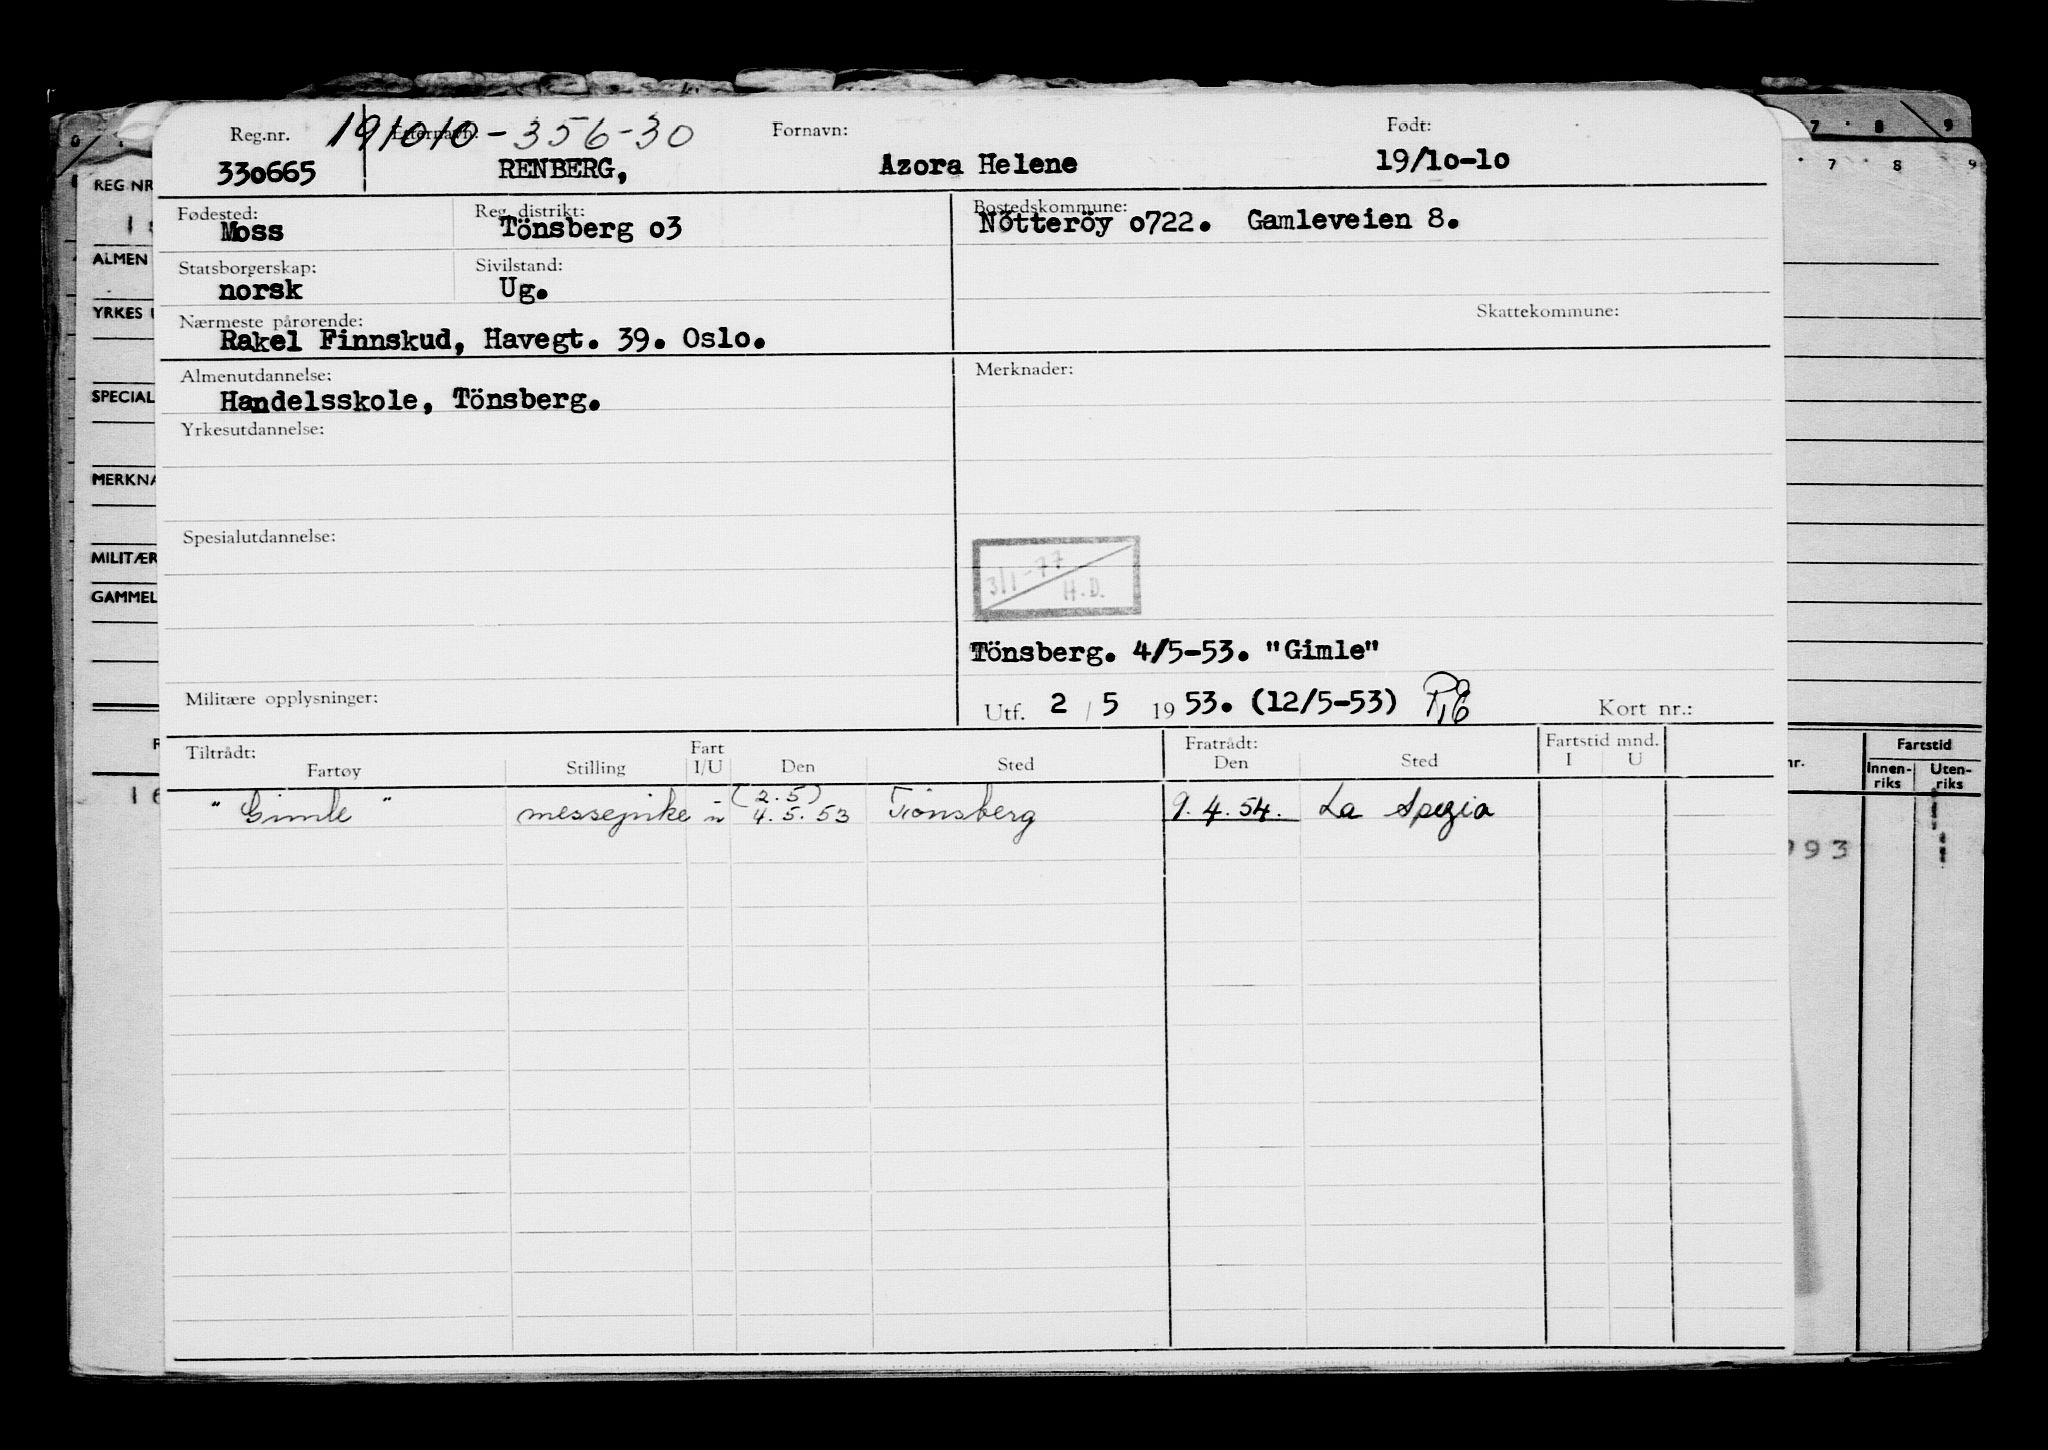 Reg.nr. Etternavn: 191010-356-30 Fornavn: Født:
330665 RENBERG, Azora Helene 19/10-10
Fødested: Reg. distrikt: Bostedskommune:
Moss Tönsberg o3 Nötteröy o722. Gamleveien 8.
Statsborgerskap: Sivilstand:
norsk Ug.
Nærmeste pårørende: Skattekommune:
Rakel Finnskud, Havegt. 39. Oslo.
Almenutdannelse: Merknader:
Handelsskole, Tönsberg.
Yrkesutdannelse:
Spesialutdannelse:
3/1-77
H.D.
Tönsberg. 4/5-53. "Gimle"
Militære opplysninger: Utf. 2 / 5 19 53. (12/5-53) Kort nr.:
Tiltrådt: Fart Fratrådt: Fartstid mnd.
Fartøy Stilling I/U Den Sted Den Sted I U
(2.5)
"Gimle" messepike u 4.5.53 Tönsberg 9.4.54. La Spezia
REG NR
ALMEN
YRKES
SPECIAL
MERKNA
MILITÆR
GAMMEL
7 8 9
7 8 9
nr. Fartstid
Innen-riks Uten-riks
16
993